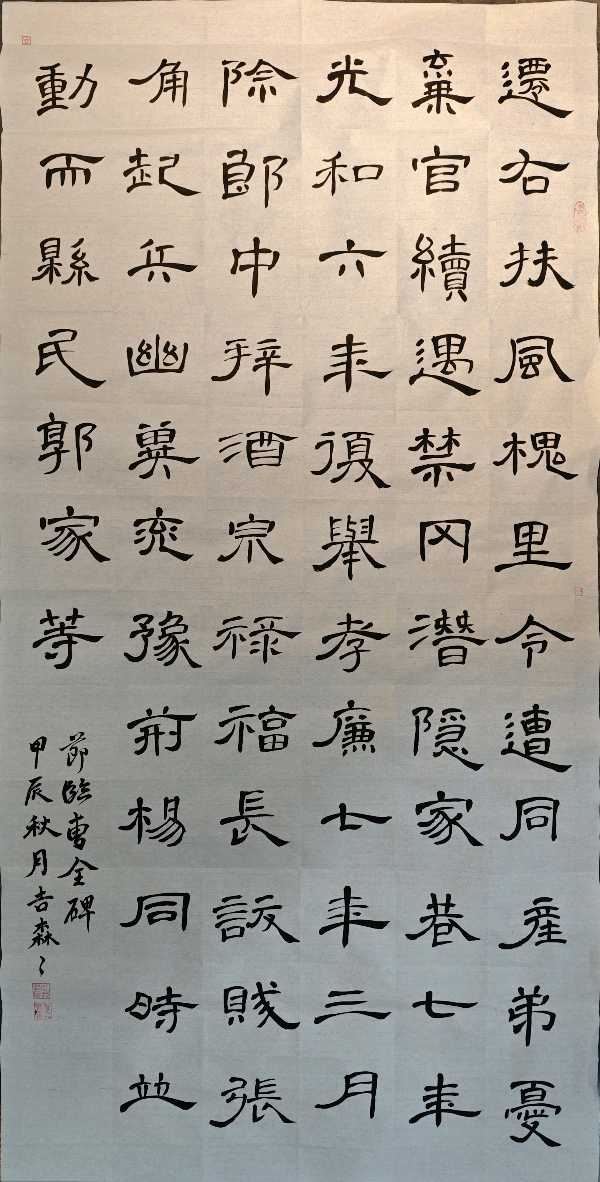 遷右扶風槐里令遭同產弟憂
棄官續遇禁冈潛隱家巷七年
光和六年復舉孝廉七年三月
除郎中拜酒泉祿福長訞賊張
角起兵幽冀兖豫荊楊同時並
動而縣民郭家等
節臨曹全碑
甲辰秋月吉森